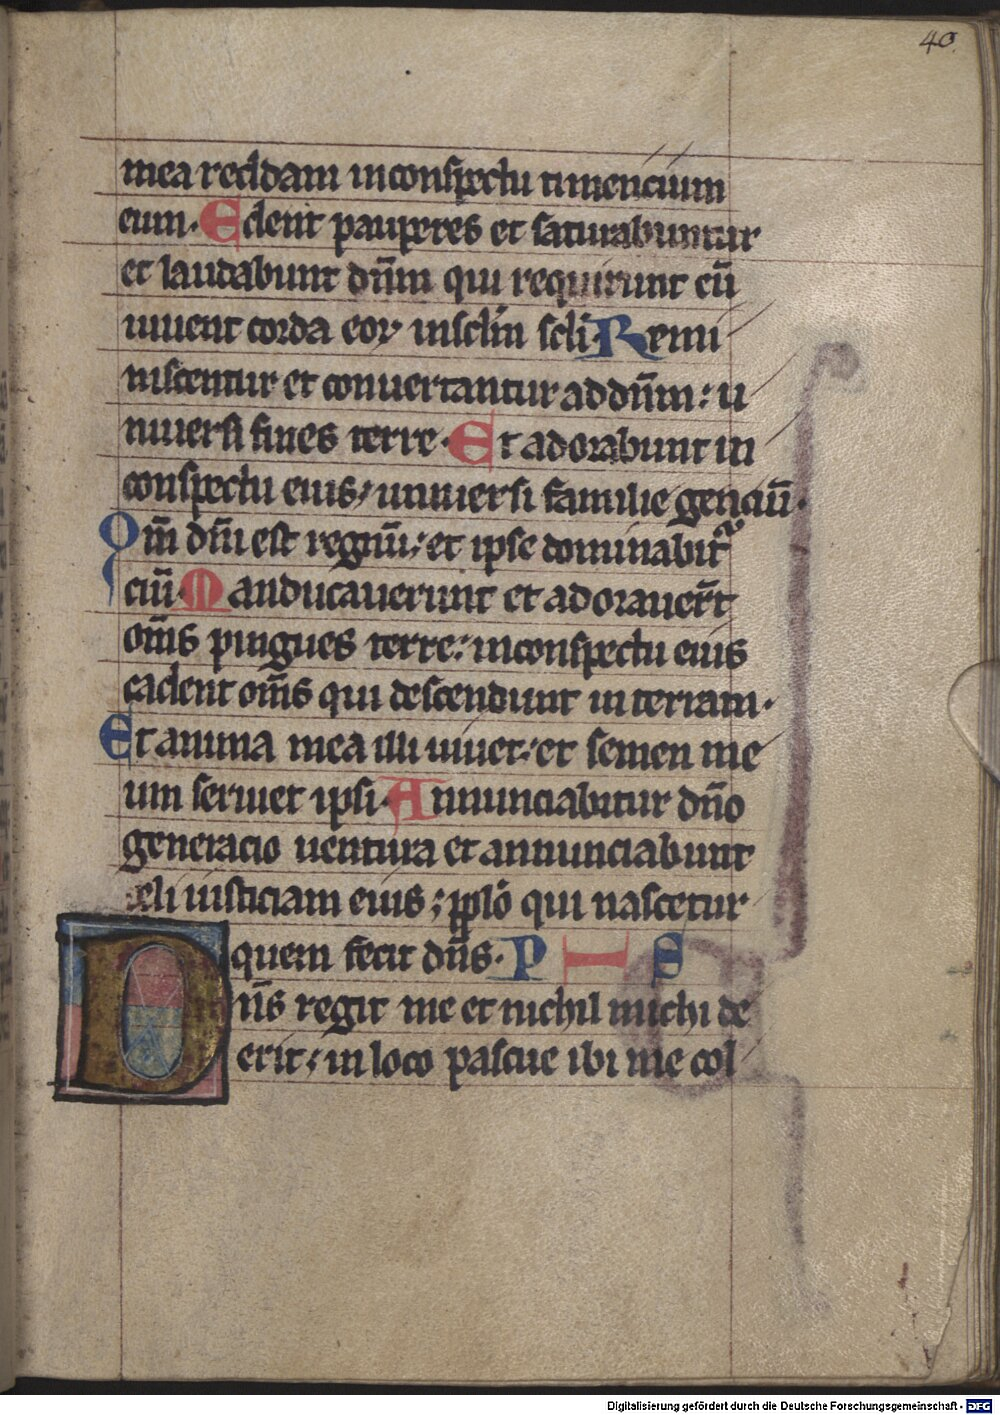 40.
mea reddam inconspectu timencium
eum. Edent pauperes et saturabuntur
et laudabunt dn̄m qui requirunt eū
uiuent corda eoꝝ insclm scli. Remi
niscentur et conuertantur addn̄m: u
niuersi fines terre. Et adorabunt in
conspectu eius, uniuersi familie genciū.
Qm̄ dn̄i est regnū: et ipse dominabitᷣ
ciū. Manducauerunt et adorauer̄t
om̄s pingues terre: inconspectu eius
cadent om̄s qui descendunt interram.
Et anima mea illi uiuet: et semen me
um seruiet ipsi. Annunciabitur dn̄o
generacio uentura et annunciabunt
celi iusticiam eius; pplo qui nascetur
quem fecit dn̄s. P I S
Dn̄s regit me et nichil michi de
erit: in loco pascue ibi me col
Digitalisierung gefördert durch die Deutsche Forschungsgemeinschaft - DFG